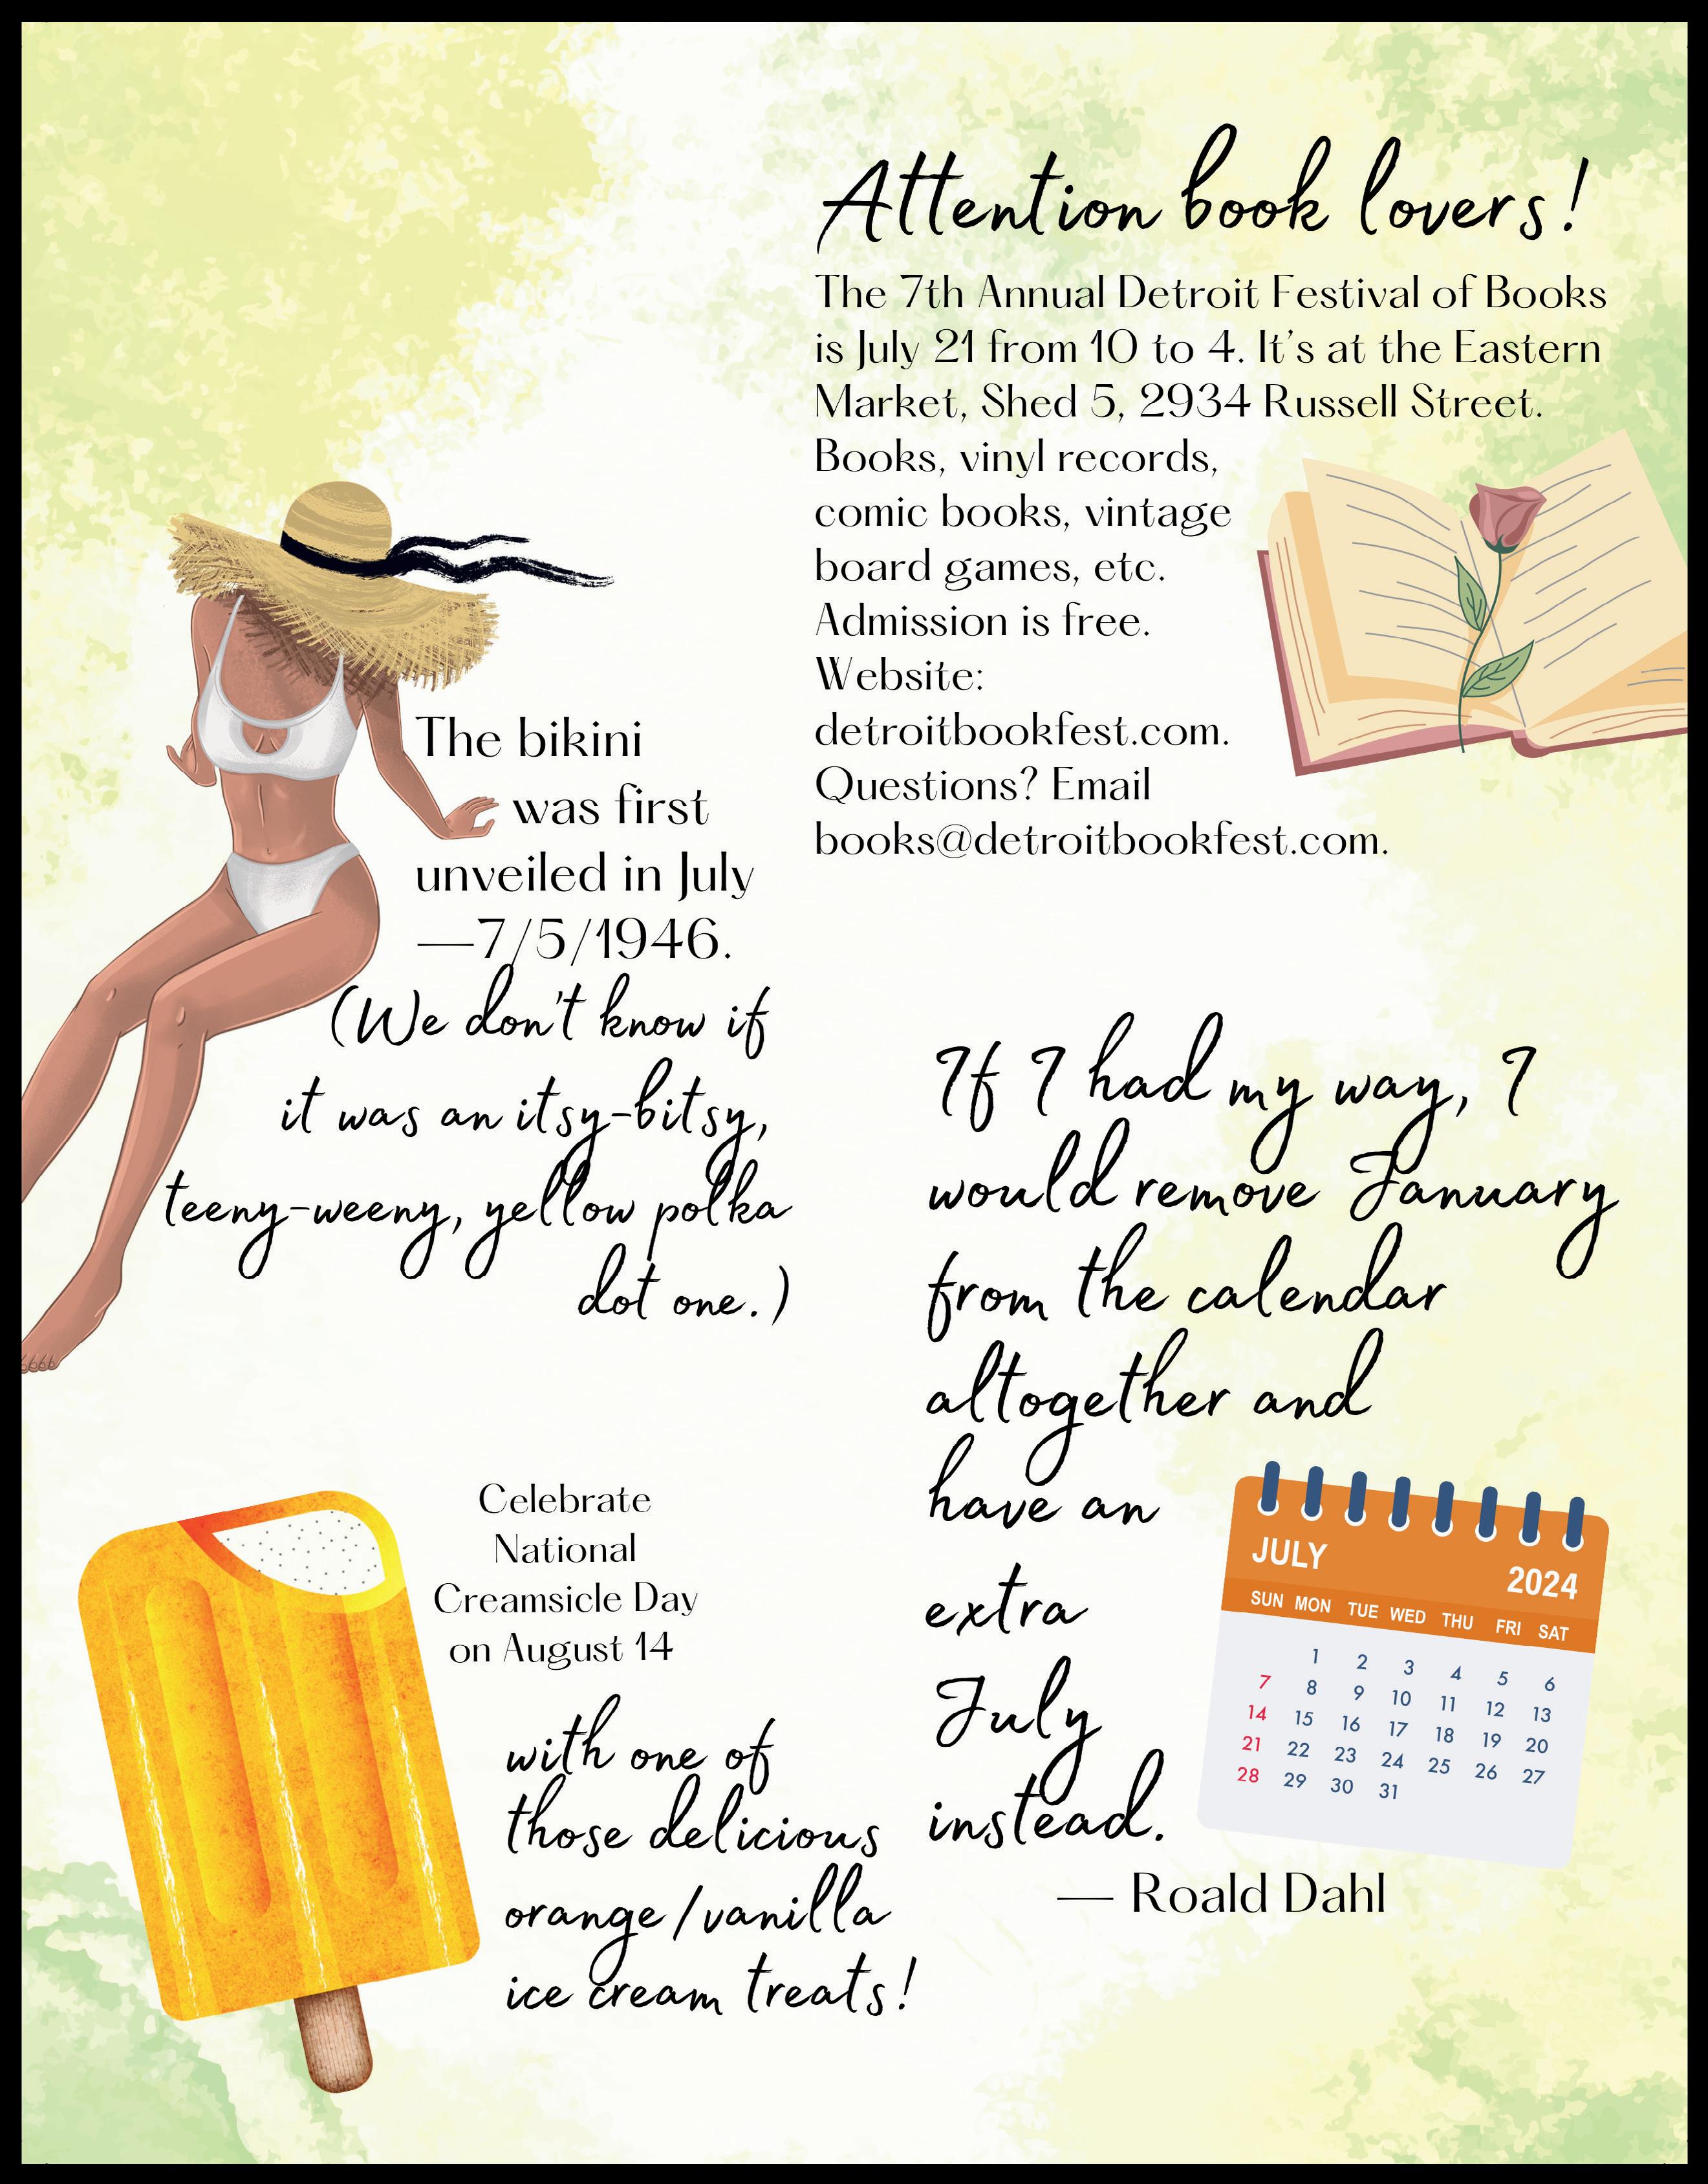 Attention book lovers!
The 7th Annual Detroit Festival of Books
is July 21 from 10 to 4. It's at the Eastern
Market, Shed 5, 2934 Russell Street.
Books, vinyl records,
comic books, vintage
board games, etc.
Admission is free.
Website:
detroitbookfest.com.
Questions? Email
books@detroitbookfest.com.
The bikini
was first
unveiled in July
—7/5/1946.
(We don't know if
it was an itsy-bitsy,
teeny-weeny, yellow polka
dot one.)
If I had my way, I
would remove January
from the calendar
altogether and
have an
extra
July
instead.
— Roald Dahl
JULY
2024
SUN MON TUE WED THU FRI SAT
1 2 3 4 5 6
7 8 9 10 11 12 13
14 15 16 17 18 19 20
21 22 23 24 25 26 27
28 29 30 31
Celebrate
National
Creamsicle Day
on August 14
with one of
those delicious
orange/vanilla
ice cream treats!